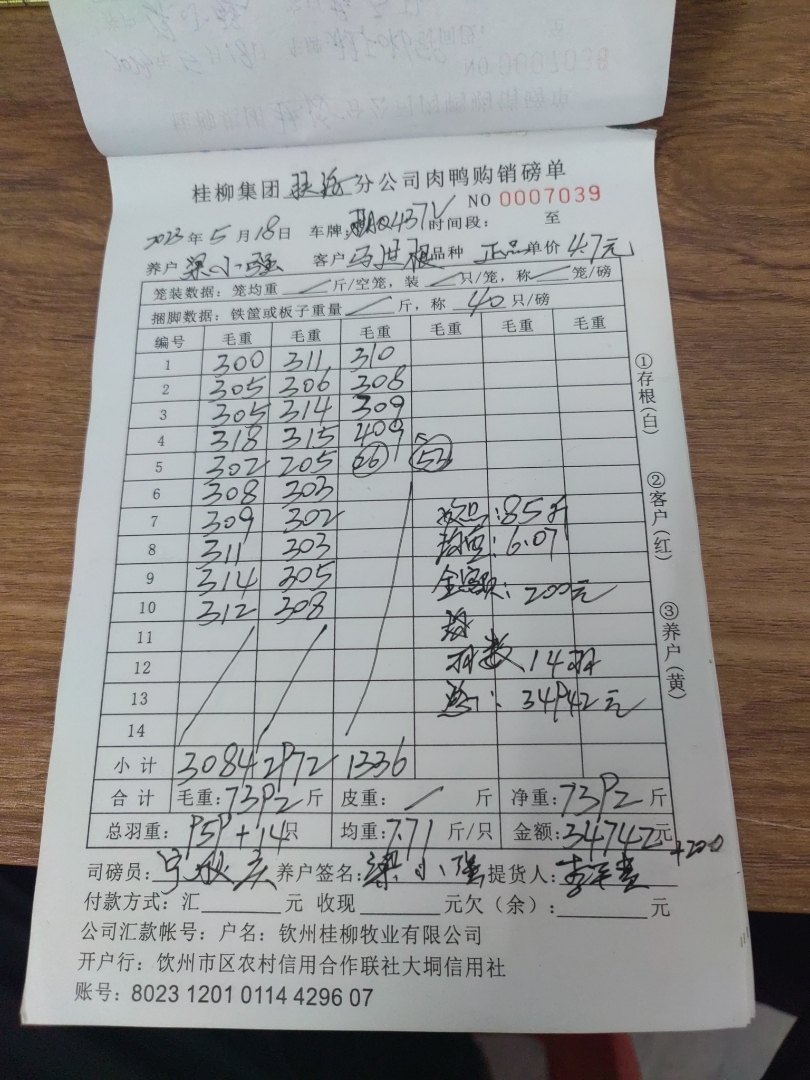 桂柳集团 扶绥 分公司肉鸭购销磅单
NO 0007039
2023年5月18日 车牌: 437V 时间段: 至
养户 梁小强 客户 马世 品种 正品 单价 4.7元
笼装数据: 笼均重 / 斤/空笼, 装 / 只/笼, 称 / 笼/磅
捆脚数据: 铁筐或板子重量 / 斤, 称 40 只/磅
编号 毛重 毛重 毛重 毛重 毛重 毛重
1 300 311 310
2 305 306 308
3 305 314 309
4 318 315 409
5 302 205 26 53
6 308 303
7 309 302 次品:85斤
8 311 303 均重:6.07
9 314 305 金额:200元
10 312 308
11
12 羽数14羽
13 总:34942元
14
小计 3084 2972 1336
合计 毛重:7392斤 皮重: / 斤 净重:7392斤
总羽重: 959+14只 均重:7.71斤/只 金额:34742元
+200
司磅员: 养户签名: 梁小强 提货人:
付款方式: 汇 元 收现 元欠(余): 元
公司汇款帐号: 户名: 钦州桂柳牧业有限公司
开户行: 饮州市区农村信用合作联社大垌信用社
账号: 8023 1201 0114 4296 07
①存根(白)
②客户(红)
③养户(黄)